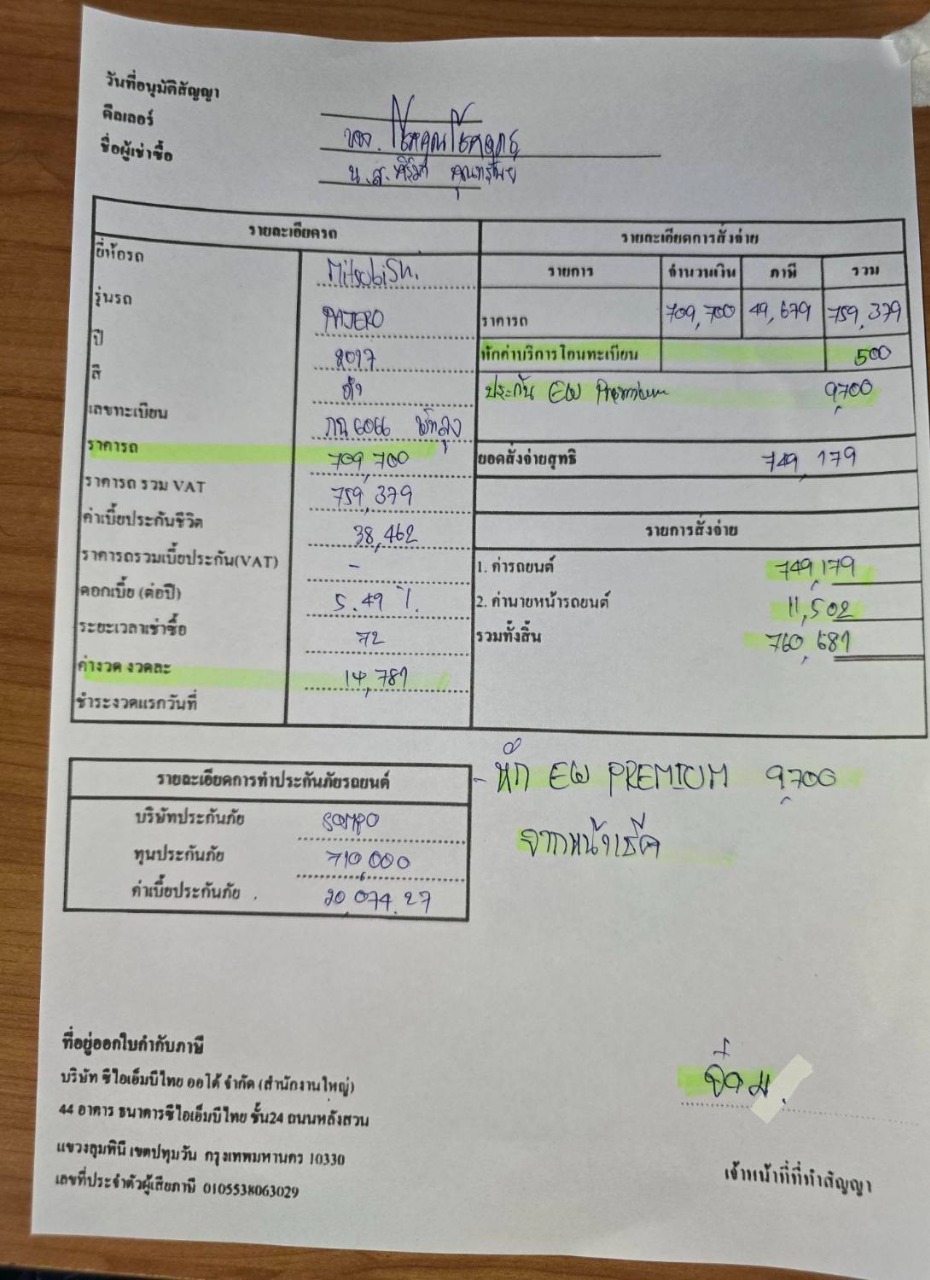 วันที่อนุมัติสัญญา
ดีลเลอร์ หจก. โชคคูณโชค
ชื่อผู้เช่าซื้อ น.ส.
รายละเอียดรถ
ยี่ห้อรถ Mitsubishi.
รุ่นรถ PAJERO
ปี 2017
สี ดำ
เลขทะเบียน กฉ 6066 พัทลุง
ราคารถ 709,700
ราคารถ รวม VAT 759,379
ค่าเบี้ยประกันชีวิต 38,462
ราคารถรวมเบี้ยประกัน(VAT) -
ดอกเบี้ย (ต่อปี) 5.49 %.
ระยะเวลาเช่าซื้อ 72
ค่างวด งวดละ 14,781
ชำระงวดแรกวันที่
รายละเอียดการสั่งจ่าย
รายการ จำนวนเงิน ภาษี รวม
ราคารถ 709,700 49,679 759,379
หักค่าบริการโอนทะเบียน 500
ประกัน EW Premium 9,700
ยอดสั่งจ่ายสุทธิ 749,179
รายการสั่งจ่าย
1. ค่ารถยนต์ 749,179
2. ค่านายหน้ารถยนต์ 11,502
รวมทั้งสิ้น 760,681
รายละเอียดการทำประกันภัยรถยนต์
บริษัทประกันภัย SOMPO
ทุนประกันภัย 710,000
ค่าเบี้ยประกันภัย . 20,074.27
- หัก EW PREMIUM 9,700
จากหน้าเช็ค
ที่อยู่ออกใบกำกับภาษี
บริษัท ซีไอเอ็มบีไทย ออโต้ จำกัด (สำนักงานใหญ่)
44 อาคาร ธนาคารซีไอเอ็มบีไทย ชั้น24 ถนนหลังสวน
แขวงลุมพินี เขตปทุมวัน กรุงเทพมหานคร 10330
เลขที่ประจำตัวผู้เสียภาษี 0105538063029
เจ้าหน้าที่ที่ทำสัญญา